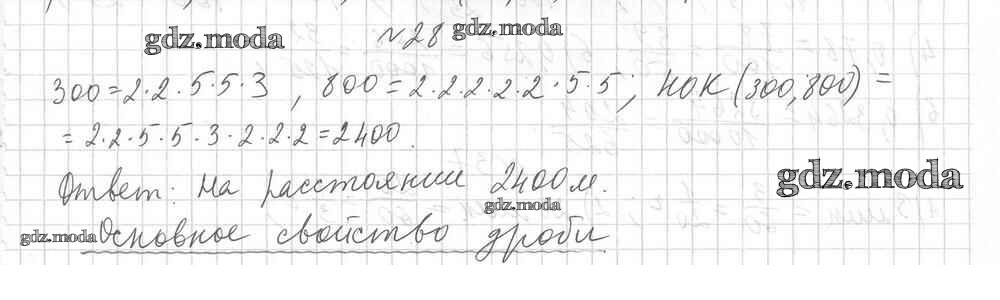 gdz.moda №28 gdz.moda
300=2·2·5·5·3, 800=2·2·2·2·2·5·5; НОК(300;800)=
=2·2·5·5·3·2·2·2=2400.
Ответ: на расстоянии 2400м.
gdz.moda
gdz.moda
gdz.moda Основное свойство дроби